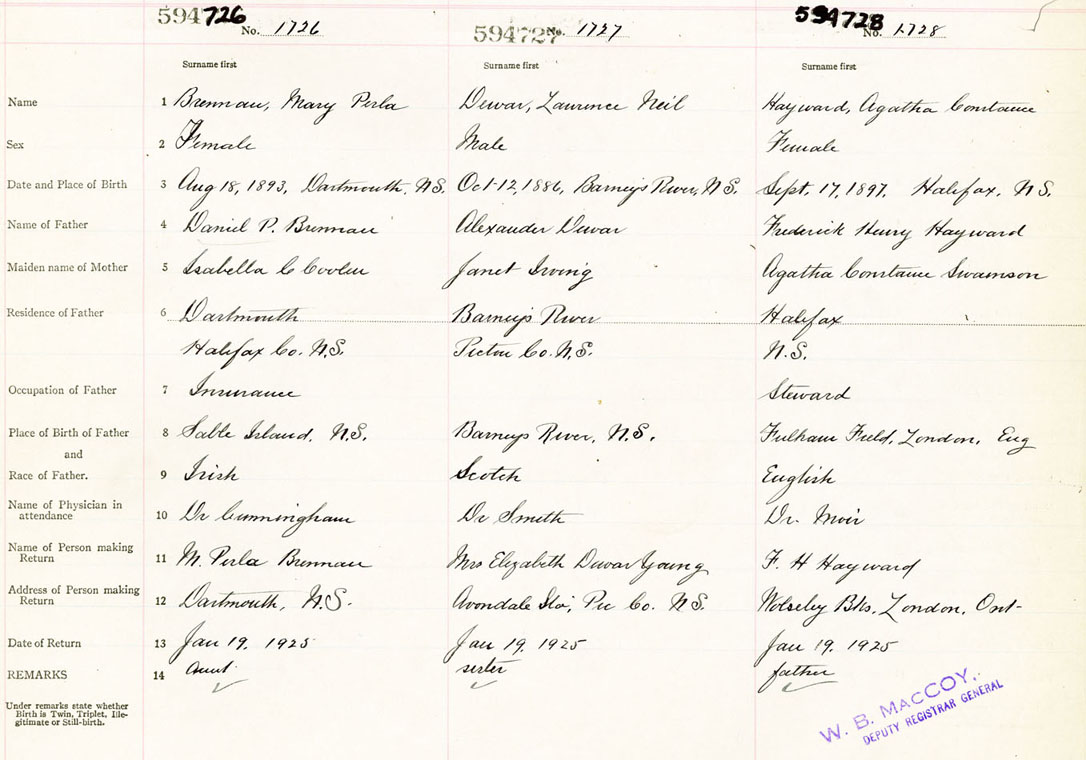 594726 594727 594728
No. 1726 No. 1727 No. 1728
Surname first Surname first Surname first
Name 1 Brennan, Mary Perla Dewar, Laurence Neil Hayward, Agatha Constance
Sex 2 Female Male Female
Date and Place of Birth 3 Aug 18, 1893, Dartmouth, N.S. Oct 12, 1886, Barneys River, N.S. Sept. 17, 1897, Halifax, N.S.
Name of Father 4 Daniel P. Brennan Alexander Dewar Frederick Henry Hayward
Maiden name of Mother 5 Isabella C Coolen Janet Irving Agatha Constance Swainson
Residence of Father 6 Dartmouth Barneys River Halifax
Halifax Co. N.S. Pictou Co. N.S. N.S.
Occupation of Father 7 Insurance Steward
Place of Birth of Father 8 Sable Island, N.S. Barneys River, N.S. Fulham Field, London, Eng
and
Race of Father. 9 Irish Scotch English
Name of Physician in
attendance 10 Dr Cunningham Dr Smith Dr. Moir
Name of Person making
Return 11 M. Perla Brennan Mrs Elizabeth Dewar Young F. H Hayward
Address of Person making
Return 12 Dartmouth, N.S. Avondale Sta, Pic Co. N.S. Wolseley Bks, London, Ont-
Date of Return 13 Jan 19, 1925 Jan 19, 1925 Jan 19, 1925
REMARKS 14 aunt sister father
Under remarks state whether
Birth is Twin, Triplet, Ille-
gitimate or Still-birth.
W. B. MACCOY,
DEPUTY REGISTRAR GENERAL